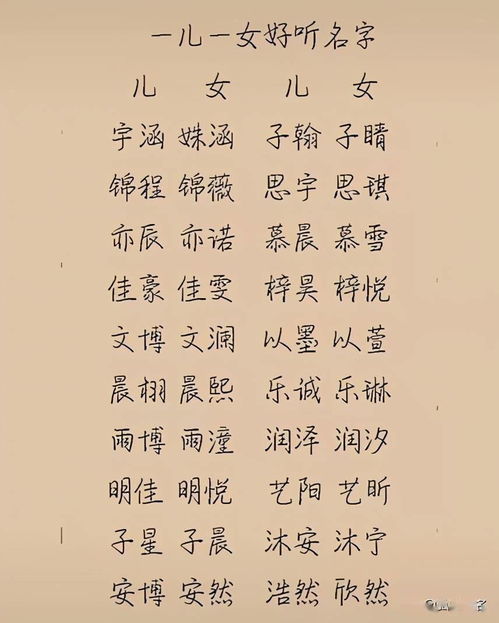 一儿一女好听名字
儿 女 儿 女
宇涵 姝涵 子翰 子晴
锦程 锦薇 思宇 思琪
亦辰 亦诺 慕晨 慕雪
佳豪 佳雯 梓昊 梓悦
文博 文澜 以墨 以萱
晨栩 晨熙 乐诚 乐琳
雨博 雨潼 润泽 润汐
明佳 明悦 艺阳 艺昕
子星 子晨 沐安 沐宁
安博 安然 浩然 欣然